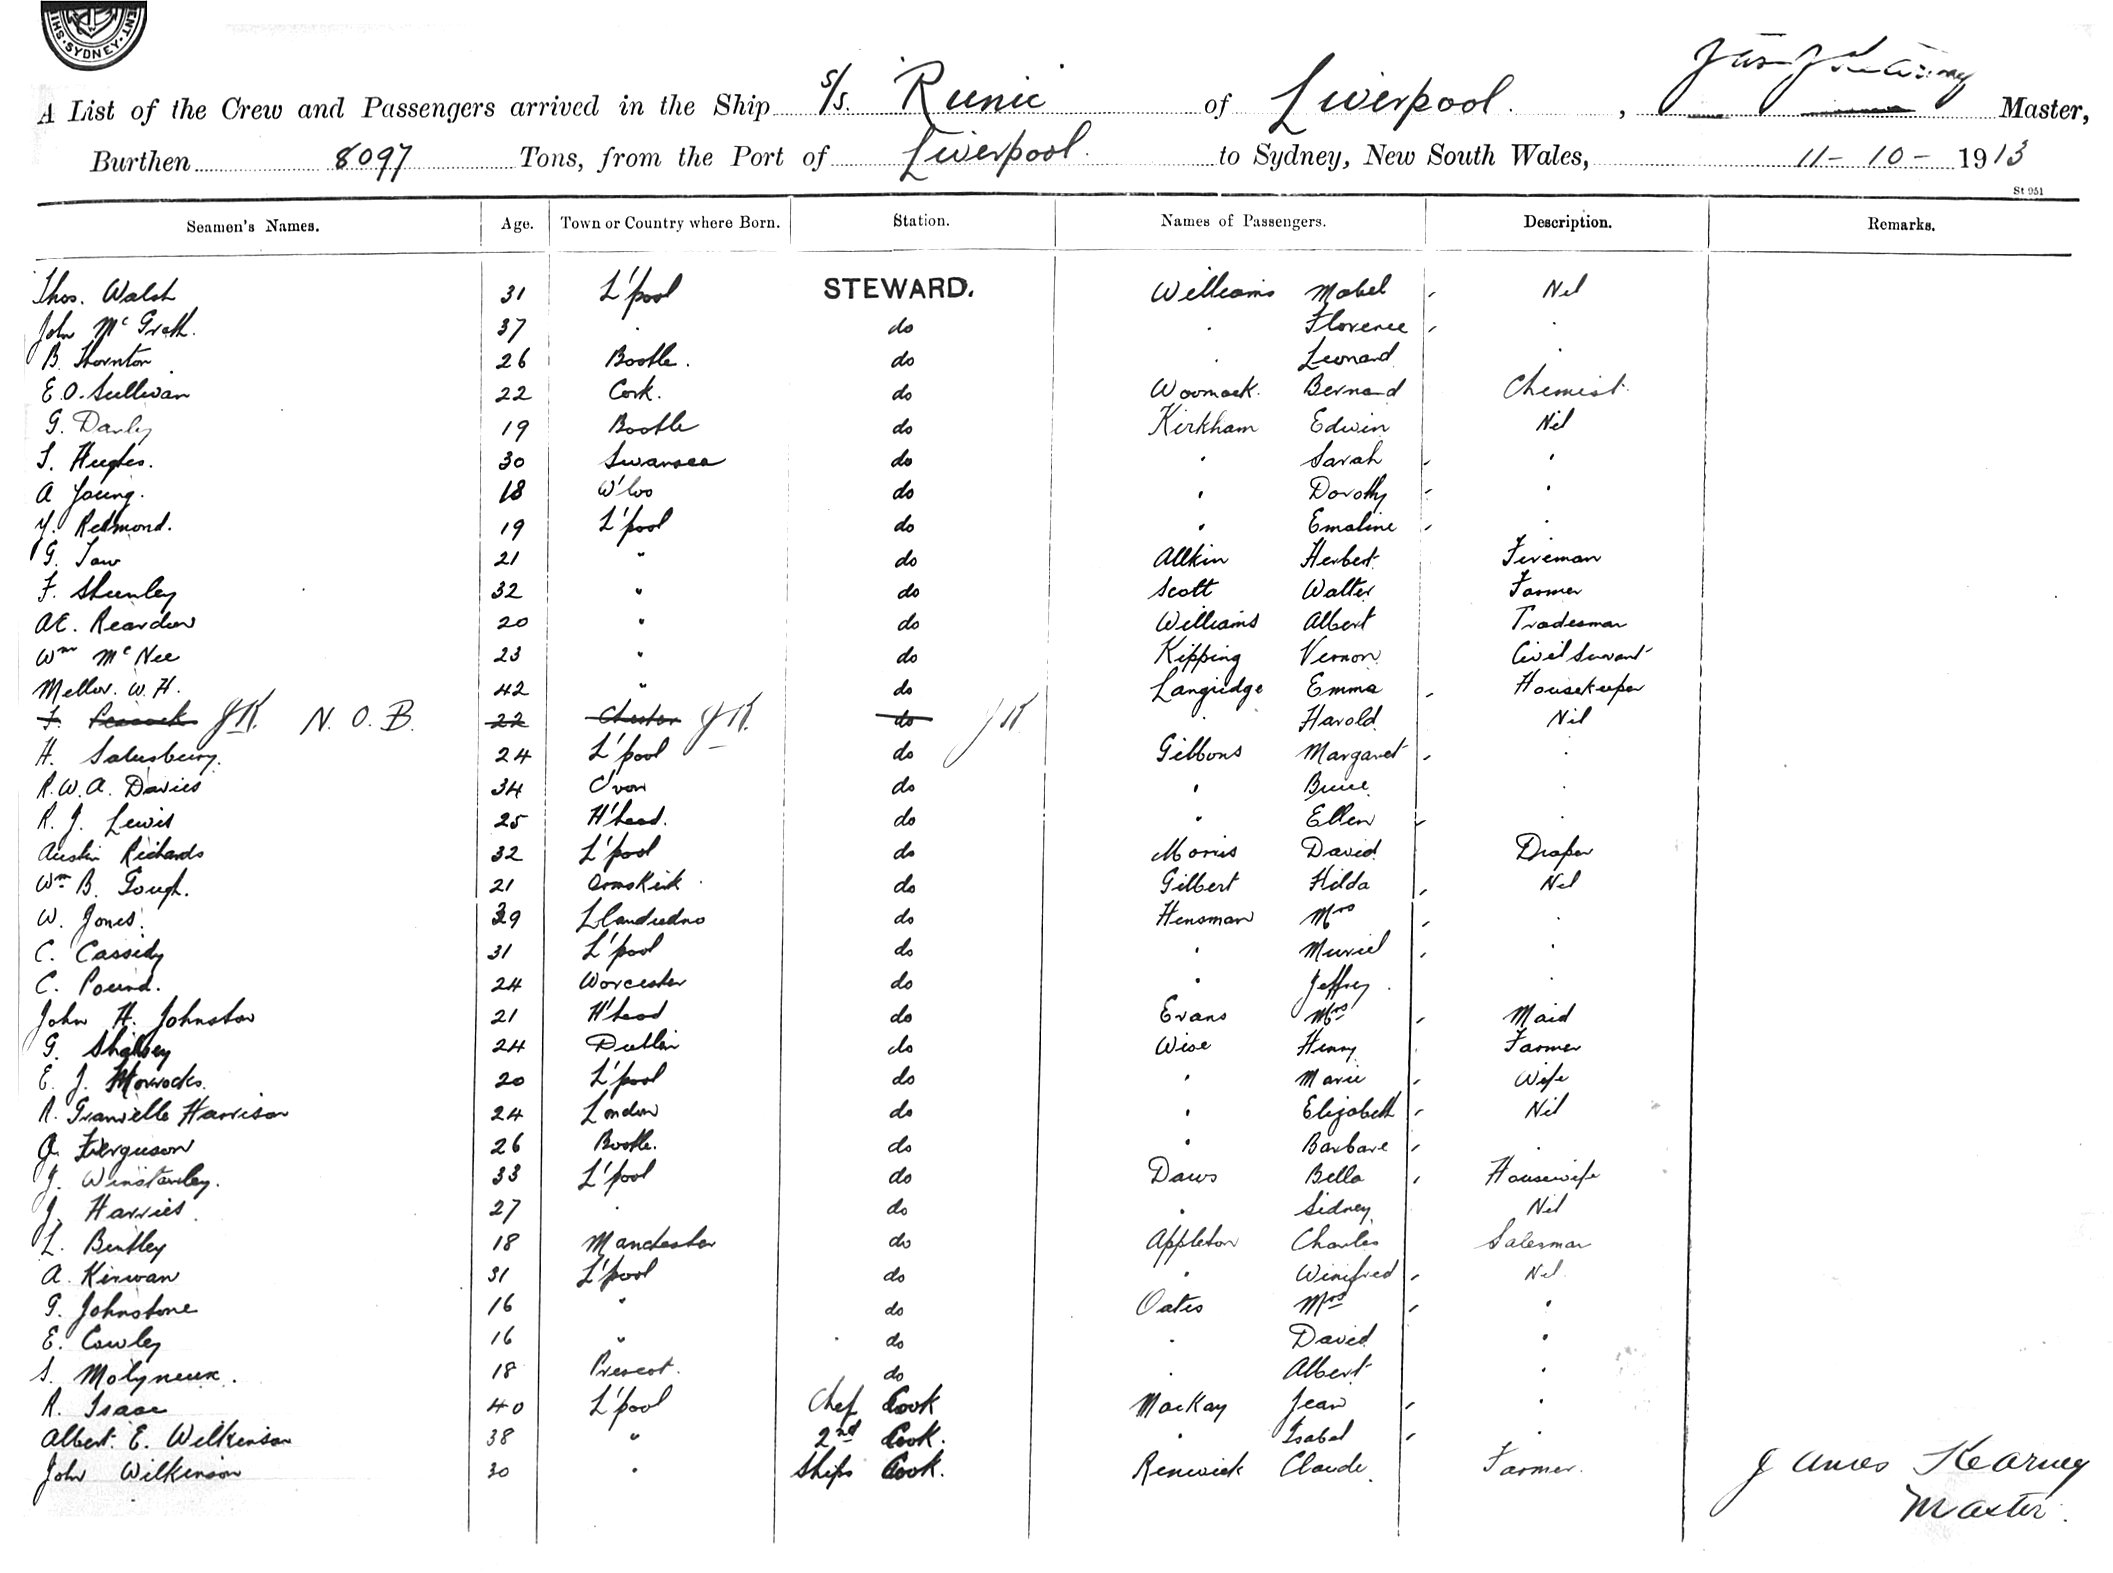 SYDNEY
A List of the Crew and Passengers arrived in the Ship S/S. Runic of Liverpool. , Master,
Burthen 8097 Tons, from the Port of Liverpool. to Sydney, New South Wales, 11-10-1913
St 951
Seamen's Names. Age. Town or Country where Born. Station. Names of Passengers. Description. Remarks.
Thos. Walsh 31 L'pool STEWARD. Williams Mabel Nil
John McGrath. 37 do Florence
B. Thornton 26 Bootle. do Leonard
E. O. Sullivan 22 Cork. do Woomack. Bernard Chemist.
G. Danly 19 Bootle do Kirkham Edwin Nil
S. Hughes. 30 Swansea do Sarah
A Young. 18 W'loo do Dorothy
Redmond. 19 L'pool do Emaline
G. Taw 21 " do Allkin Herbert Fireman
F. 32 " do Scott Walter Farmer
AE. Reardon 20 " do Williams Albert Tradesman
Wm McNee 23 " do Kipping Vernon Civil Servant
Mellor. W. H. 42 " do Langridge Emma Housekeeper
F. Peacock JK. N. O. B. 22 Chester JK. do JK Harold Nil
H. Salusbury. 24 L'pool do Gibbons Margaret
R. W. A. Davies 34 C'von do Bruce
R. J. Lewis 25 do Ellen
Austin Richards 32 L'pool do Morris David Draper
Wm B. Gough. 21 Ormskirk. do Gilbert Hilda Nil
W. Jones. 39 Llandudno do Hensman Mrs
C. Cassidy 31 L'pool do Muriel
C. Pound. 24 Worcester do Jeffrey
John H. Johnston 21 do Evans Mrs Maid
G. 24 Dublin do Wise Henry Farmer
E. J. Horrocks. 20 L'pool do Marie Wife
R. Granville Harrison 24 London do Elizabeth Nil
J. Ferguson 26 Bootle. do Barbara
J. Winstanley. 33 L'pool do Daws Bella Housewife
J. Harries 27 do Sidney Nil
L. Bentley 18 Manchester do Appleton Charles Salesman
A. Kirwan 31 L'pool do Winifred Nil
G. Johnstone 16 " do Oates Mrs
E. Cowley 16 " do David
S. Molyneux. 18 Prescot. do Albert
R. Isaac 40 L'pool Chef Cook MacKay Jean
Albert E. Wilkinson 38 " 2nd Cook. Isabel
John Wilkinson 30 Ships Cook. Renwick Claude Farmer. James Kearney
Master.